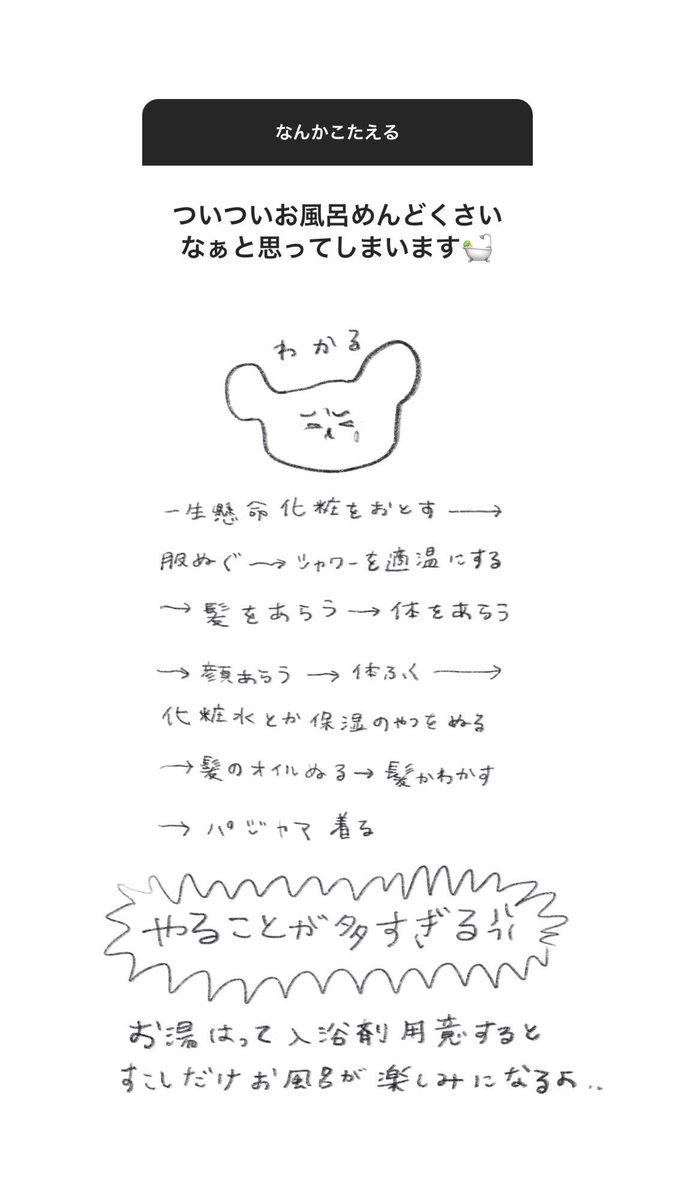 なんかこたえる
ついついお風呂めんどくさい
なぁと思ってしまいます🛀
わかる
一生懸命化粧をおとす→
服ぬぐ→シャワーを適温にする
→髪をあらう→体をあらう
→顔あらう→体ふく→
化粧水とか保湿のやつをぬる
→髪のオイルぬる→髪かわかす
→パジャマ着る
やることが多すぎる
お湯はって入浴剤用意すると
すこしだけお風呂が楽しみになるよ..